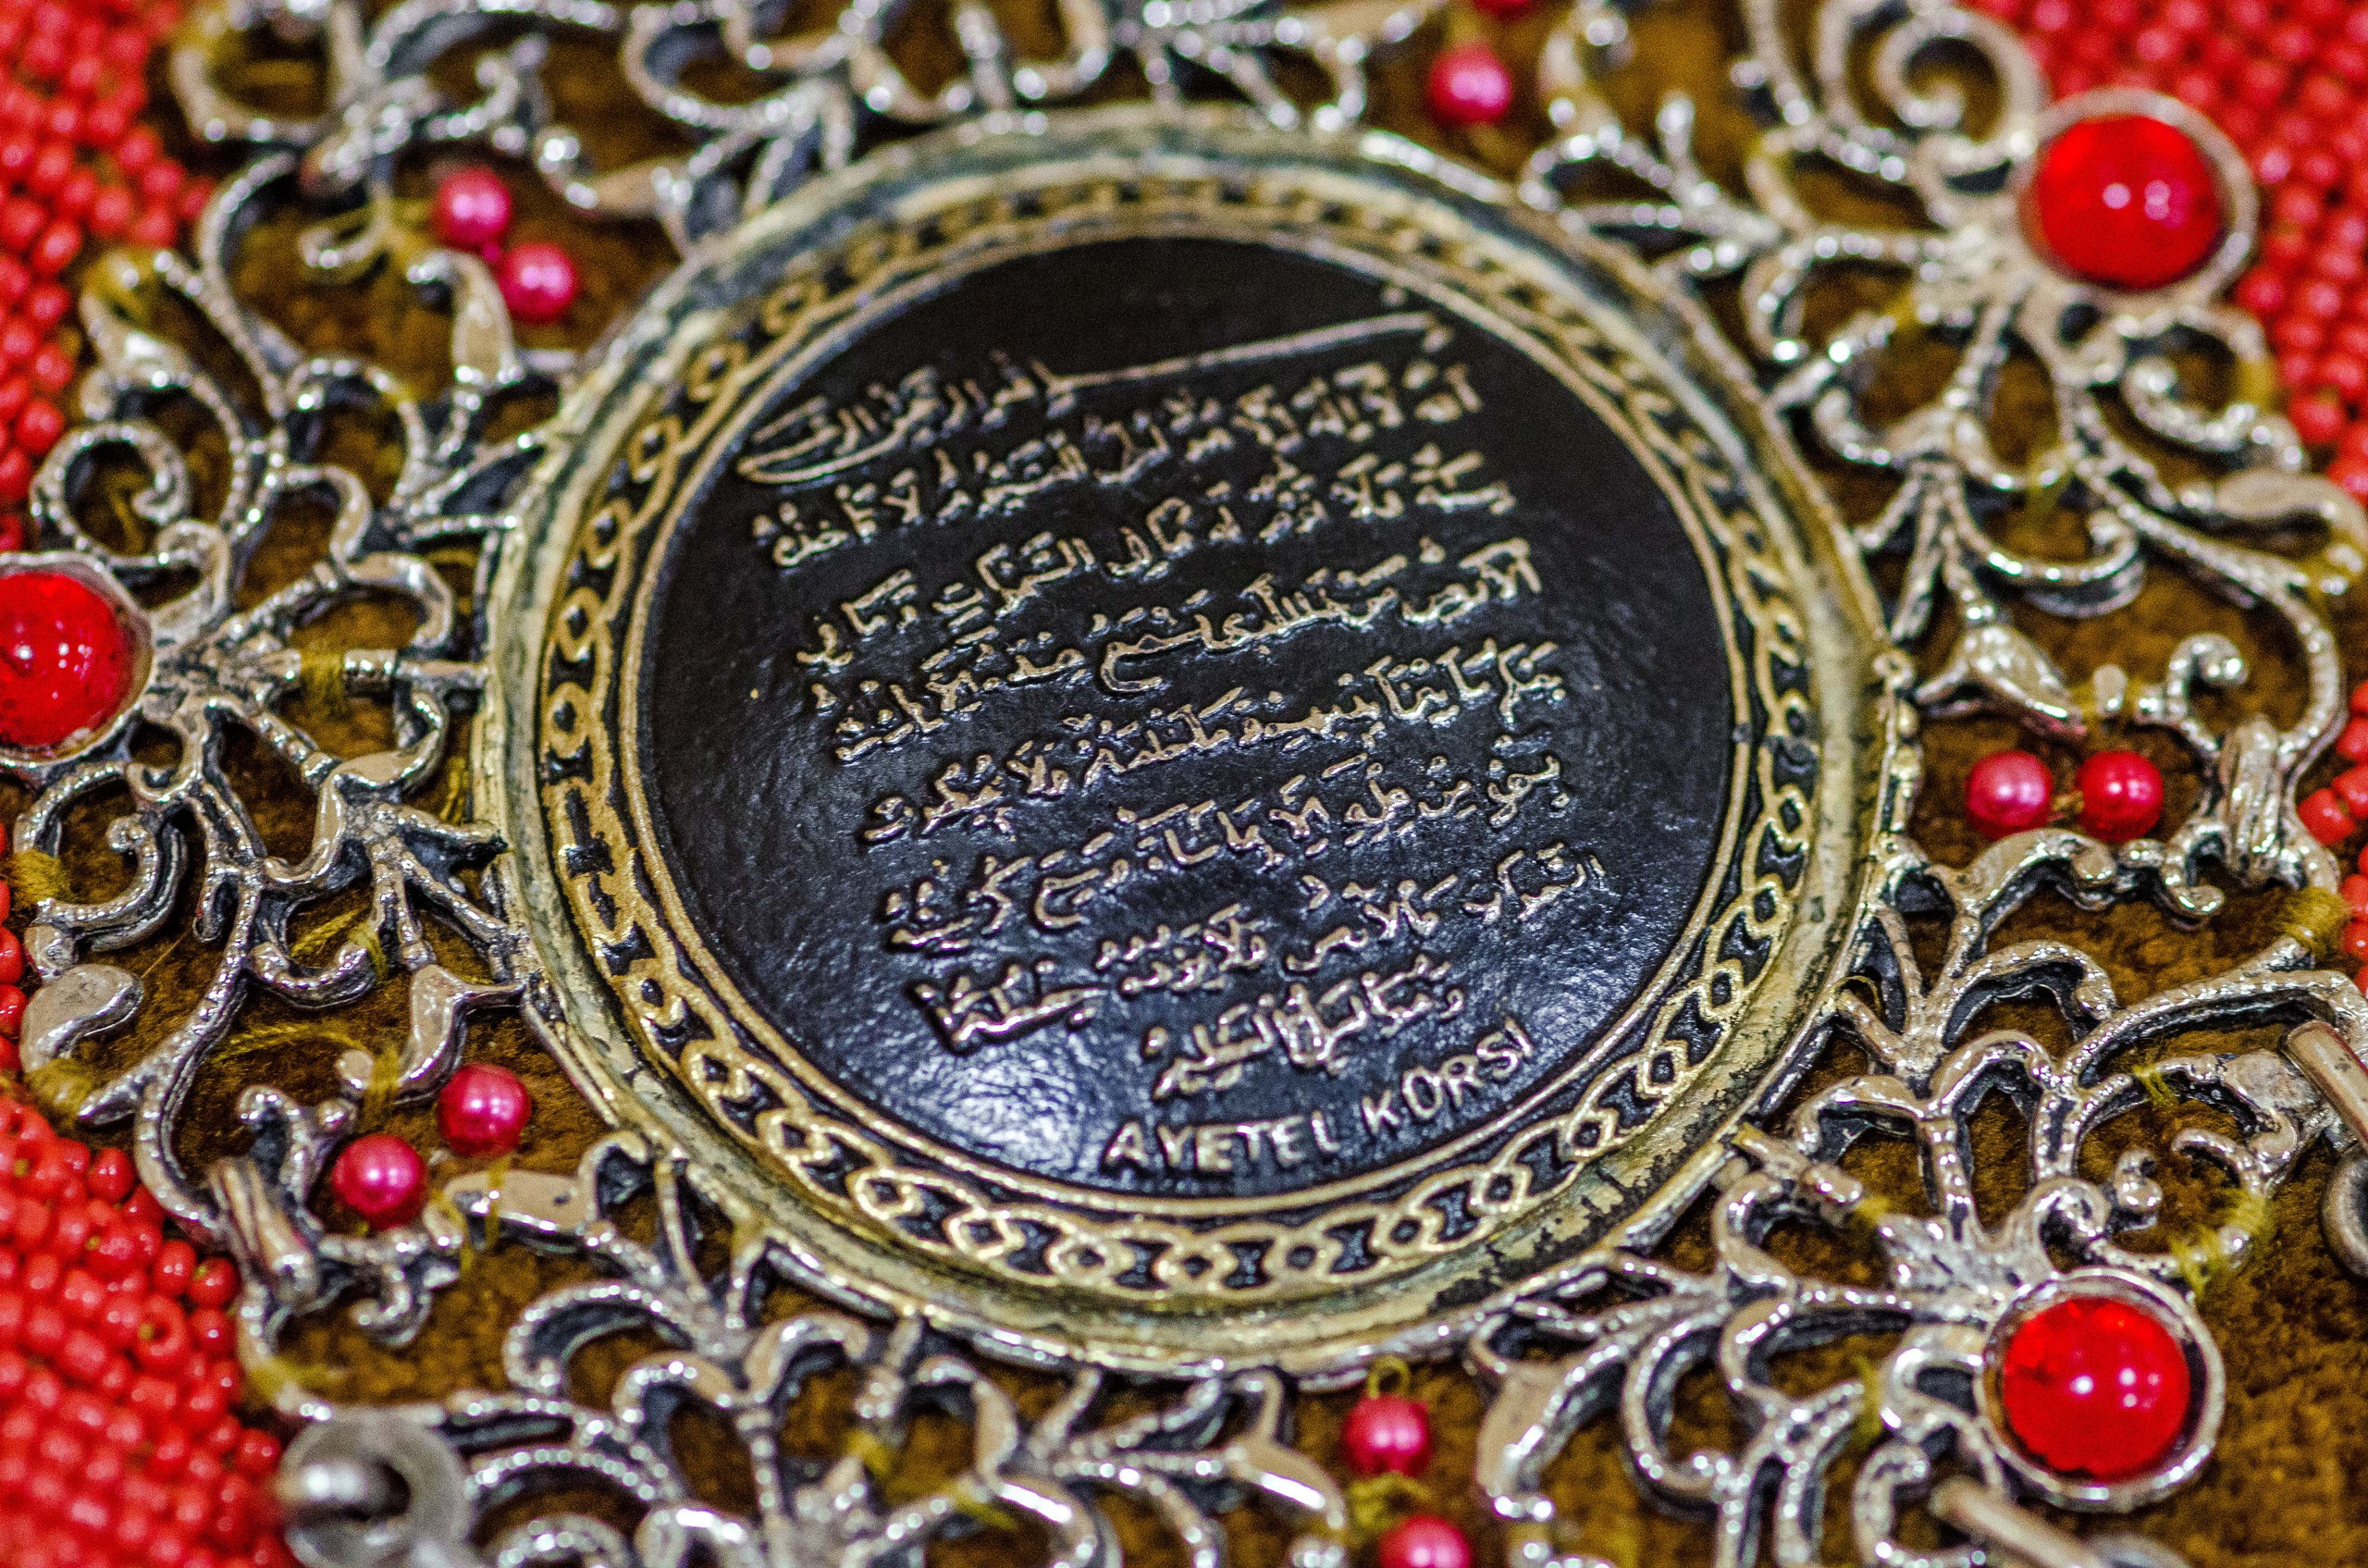 بسم الله الرحمن الرحيم
الله لا اله الا هو الحي القيوم لا تأخذه
سنة ولا نوم له ما في السموات وما في
الارض من ذا الذي يشفع عنده الا باذنه
يعلم ما بين ايديهم وما خلفهم ولا يحيطون
بشئ من علمه الا بما شاء وسع كرسيه
السموات والارض ولا يؤده حفظهما
وهو العلي العظيم
AYETEL KÜRSİ